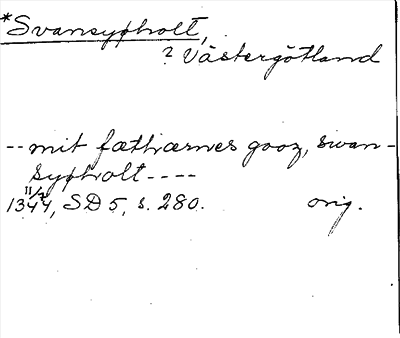 *Svansypholt,
? Västergötland
-- mit fæthærnes gooz, swan-
sypholt ----
11/2
1344, SD 5, s. 280. orig.